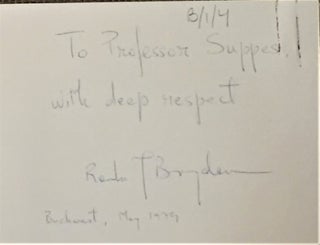 B/1/4
To Professor Suppes,
with deep respect
Bucharest, May 1979